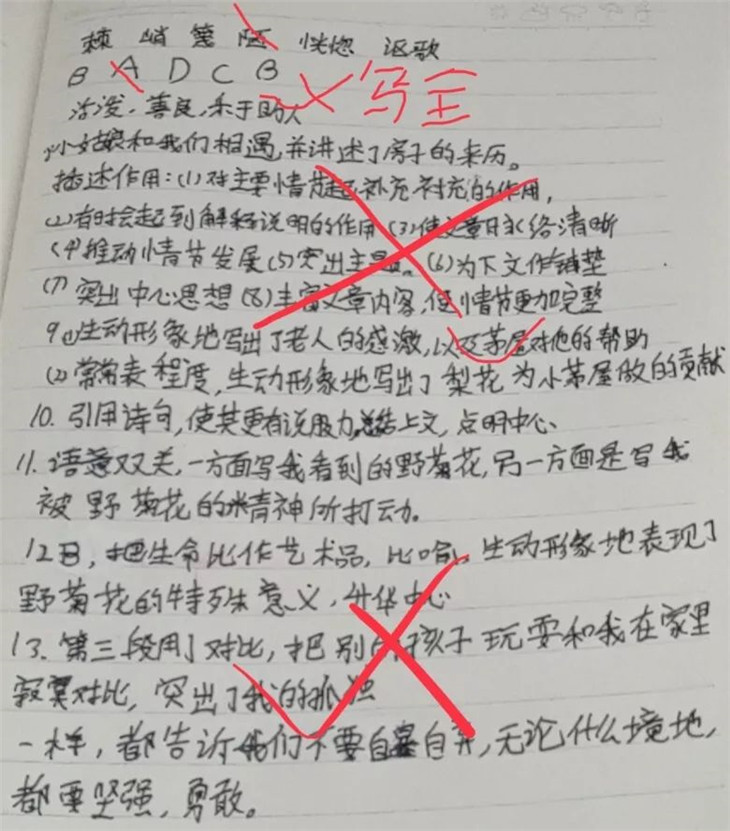 棘 峭 篱 陋 恍惚 讴歌
B A D C B
写全
活泼，善良，乐于助人
小姑娘和我们相遇，并讲述了房子的来历。
描述作用：(1)对主要情节起补充衬充的作用，
(2)有时会起到解释说明的作用 (3)使文章脉络清晰
(4)推动情节发展(5)突出主题。(6)为下文作铺垫
(7)突出中心思想(8)丰富文章内容，使情节更加完整
9(1)生动形象地写出了老人的感激，以及茅屋对他的帮助
(2)常常表程度，生动形象地写出了梨花为小茅屋做的贡献
10.引用诗句，使其更有说服力，总结上文，点明中心
11.语意双关，一方面写我看到的野菊花，另一方面是写我
被野菊花的精神所打动。
12日，把生命比作艺术品，比喻，生动形象地表现了
野菊花的特殊意义，升华中心
13.第三段用了对比，把别的孩子玩耍和我在家里
寂寞对比，突出了我的孤独
一样，都告诉我们不要自暴自弃，无论什么境地，
都要坚强，勇敢。